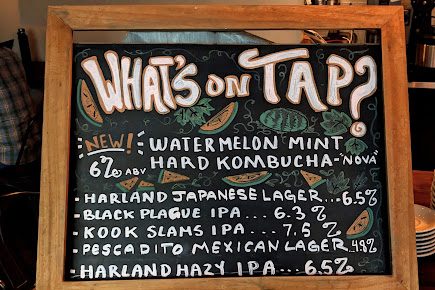 WHAT'S ON TAP?
NEW! WATERMELON MINT
6% ABV HARD KOMBUCHA - "NOVA"
- HARLAND JAPANESE LAGER... 6.5%
- BLACK PLAGUE IPA... 6.3%
- KOOK SLAMS IPA... 7.5%
- PESCADITO MEXICAN LAGER 4.8%
- HARLAND HAZY IPA... 6.5%